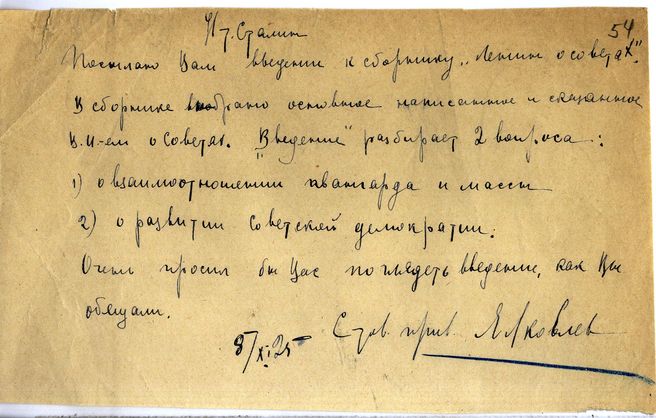 54
т. Сталин
Посылаю Вам введение к сборнику „Ленин о советах".
В сборнике собрано основное написанное и сказанное
В.И-ем о Советах. „Введение" разбирает 2 вопроса:
1) о взаимоотношении авангарда и массы
2) о развитии советской демократии.
Очень просил бы Вас поглядеть введение, как Вы
обещали.
С тов. прив. Я. Яковлев
8/XI 25